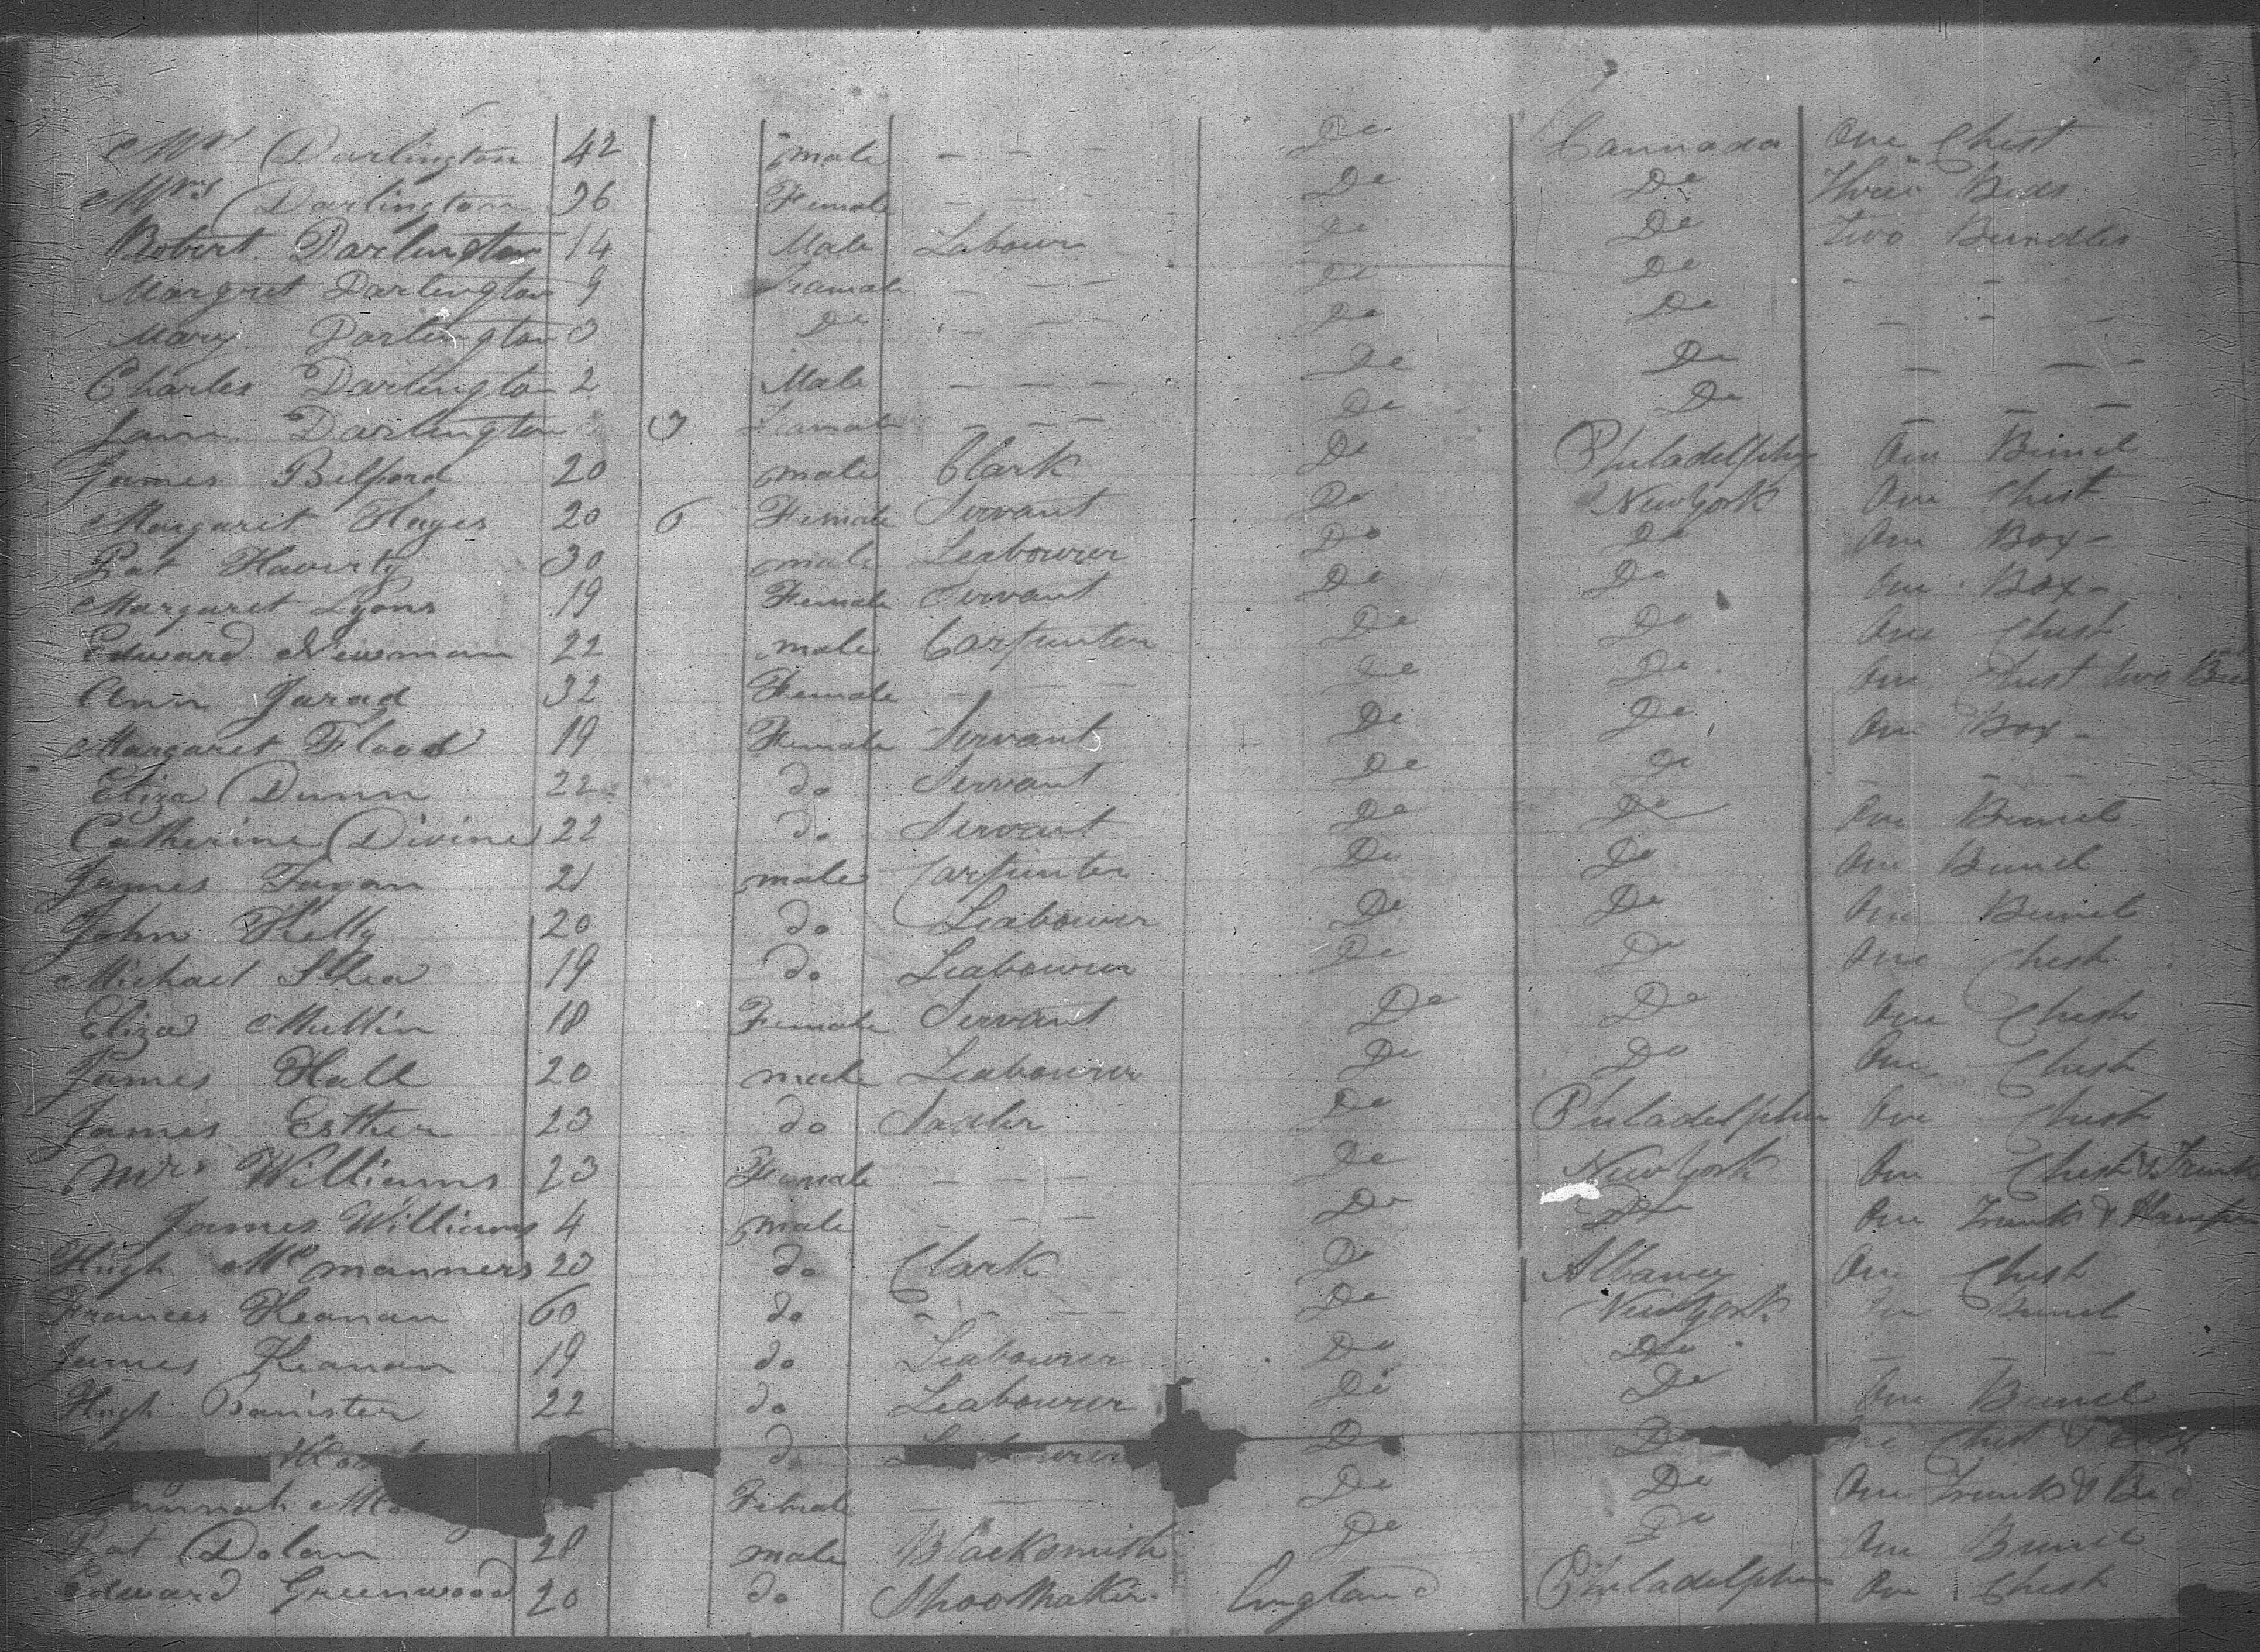 Mr Darlington 42 male - - - Do Cannada One Chest
Mrs Darlington 36 Female - - - Do Do Three Beds
Robert Darlington 14 Male Labour Do Do Two Bundles
Margret Darlington 9 Feamale - - - Do Do - -
Mary Darlington 3 Do - - - Do Do - - -
Charles Darlington 2 Male - - - Do Do - - -
Jane Darlington 3 Feamale - - - Do Do - - -
James Belford 20 male Clark Do Philadelphia One Bunel
Margaret Hayes 20 6 Female Servant Do New York One Chest
Pat Haverty 30 male Leabourer Do Do One Box -
Margaret Lyons 19 Female Servant Do Do One Box -
Edward Newman 22 male Carpunter Do Do One Chest
Ann Jarad 32 Female - - - Do Do One Chest two
Margaret Flood 19 Female Servant Do Do One Box -
Eliza Dunn 22 do Servant Do Do - - -
Catherine Divine 22 do Servant Do Do One Bunel
James Fagan 21 male Carpunter Do Do One Bunel
John Kelly 20 do Leabourer Do Do One Bunel
Michael Shea 19 do Leabourer Do Do One Chest
Eliza Mullin 18 Female Servant Do Do One Chest
James Hall 20 male Leabourer Do Do One Chest
James Esther 23 do Sadler Do Philadelphia One Chest
Mrs Williams 23 Female - - - Do New York One Chest & Trunk
James Williams 4 male - - - Do Do One Trunk &
Hugh Mc manners 23 do Clark Do Albany One Chest
Frances Keanan 60 do - - - Do New York One Bunel
James Keanan 19 do Leabourer Do Do - - -
Hugh Banister 22 do Leabourer Do Do One Bunel
do Do Do Chest &
Female - - Do Do One Trunk & Bed
Pat Dolan 28 male Blacksmith Do Do One Bunel
Edward Greenwood 20 do Shoo Maker England Philadelphia One Chest